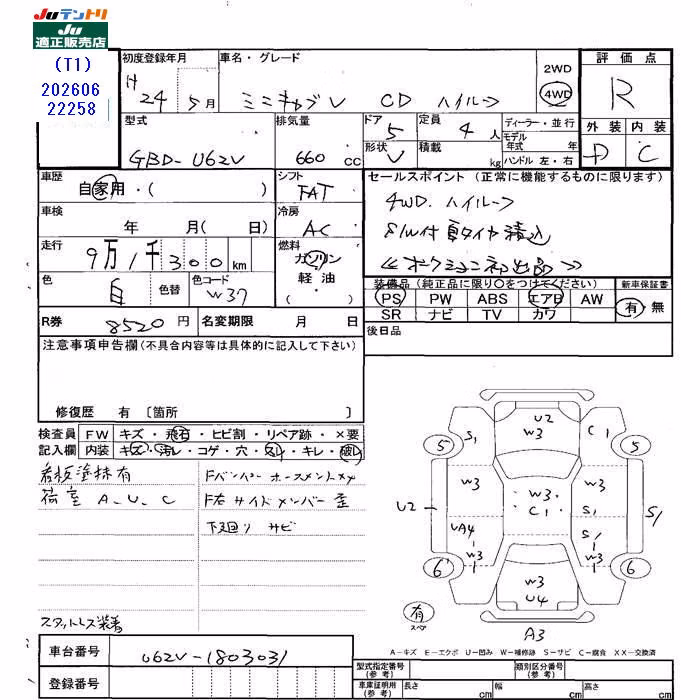 Juテントリ
Ju
適正販売店
(T1)
202606
22258
初度登録年月
H 24 年 5 月
車名・グレード
ミニキャブV CD ハイルーフ
2WD
4WD
評価点
R
外装 内装
D C
型式
GBD-U62V
排気量
660 cc
ドア 5
形状 V
定員 4 人
積載 kg
ディーラー・並行
モデル年式 年式
ハンドル 左・右
車歴
自家用・( )
シフト
FAT
セールスポイント (正常に機能するものに限ります)
4WD. ハイルーフ
S/W付 夏タイヤ積込
≪オークション初出品≫
車検
年 月( 日)
冷房
AC
走行
9万1千300 km
燃料
ガソリン
軽油
( )
色
白
色替
色コード
W37
装備品 (純正品に限り○をつけてください)
PS PW ABS エアB AW
SR ナビ TV カワ
新車保証書
有・無
R券 8520 円
名変期限 月 日
後日品
注意事項申告欄(不具合内容等は具体的に記入して下さい)
修復歴 有 〔箇所 〕
検査員記入欄
FW キズ・飛石・ヒビ割・リペア跡・×要
内装 キズ・汚レ・コゲ・穴・スレ・キレ・破レ
看板塗抹有
荷室 A、U、C
Fバンパー ホースメントメメ
F右サイドメンバー歪
下廻り サビ
スタットレス装着
U2
W3
S1
C1
5
5
W3
W3
W3
C1
S1
U2
S1
UA4
W3
S1
W3
6
6
W3
U4
有
スペア
A3
A-キズ E-エクボ U-凹み W-補修跡 S-サビ C-腐食 XX-交換済
車台番号 U62V-1803031
登録番号
型式指定番号(参考)
類別区分番号(参考)
車庫証明用(参考) 長さ cm 幅 cm 高さ cm